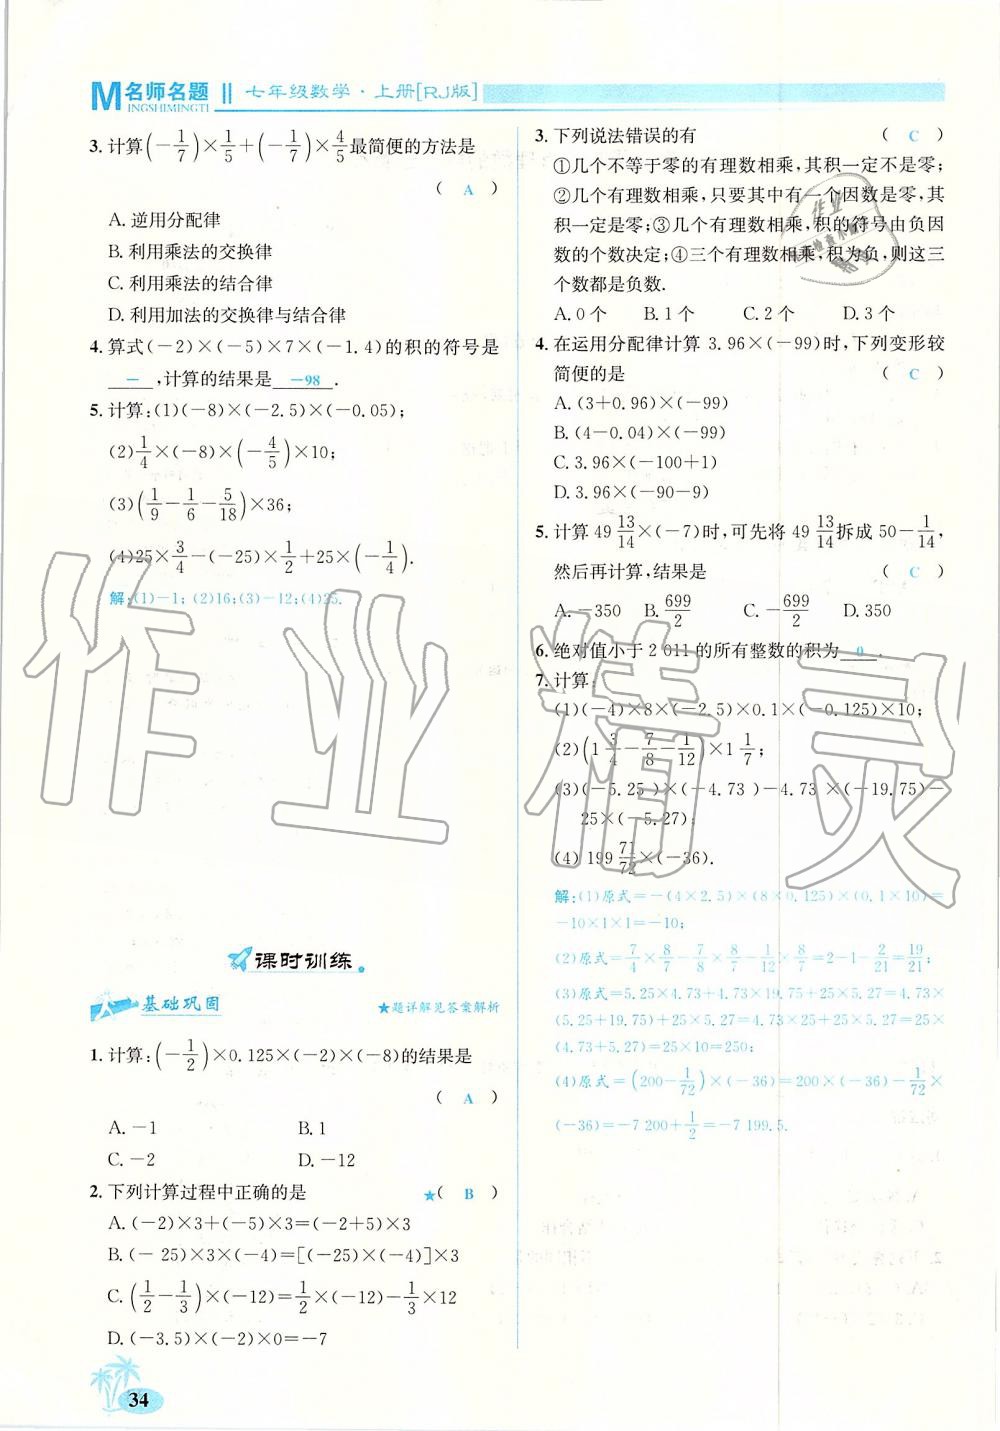 M名师名题 INGSHIMINGTI || 七年级数学·上册[RJ版]
3. 计算(-1/7)×1/5+(-1/7)×4/5最简便的方法是
( A )
A. 逆用分配律
B. 利用乘法的交换律
C. 利用乘法的结合律
D. 利用加法的交换律与结合律
4. 算式(-2)×(-5)×7×(-1.4)的积的符号是
- ,计算的结果是 -98 .
5. 计算:(1)(-8)×(-2.5)×(-0.05);
(2)1/4×(-8)×(-4/5)×10;
(3)(1/9-1/6-5/18)×36;
(4)25×3/4-(-25)×1/2+25×(-1/4).
解:(1)-1; (2)16;(3)-12;(4)25.
课时训练
基础巩固
★题详解见答案解析
1. 计算:(-1/2)×0.125×(-2)×(-8)的结果是
( A )
A. -1 B. 1
C. -2 D. -12
2. 下列计算过程中正确的是 ★( B )
A. (-2)×3+(-5)×3=(-2+5)×3
B. (-25)×3×(-4)=[(-25)×(-4)]×3
C. (1/2-1/3)×(-12)=1/2×(-12)-1/3×12
D. (-3.5)×(-2)×0=-7
34
3. 下列说法错误的有 ( C )
①几个不等于零的有理数相乘,其积一定不是零;
②几个有理数相乘,只要其中有一个因数是零,其
积一定是零;③几个有理数相乘,积的符号由负因
数的个数决定;④三个有理数相乘,积为负,则这三
个数都是负数.
A. 0个 B. 1个 C. 2个 D. 3个
4. 在运用分配律计算 3.96×(-99)时,下列变形较
简便的是 ( C )
A. (3+0.96)×(-99)
B. (4-0.04)×(-99)
C. 3.96×(-100+1)
D. 3.96×(-90-9)
5. 计算49 13/14×(-7)时,可先将49 13/14拆成 50-1/14,
然后再计算,结果是 ( C )
A. -350 B. 699/2 C. -699/2 D. 350
6. 绝对值小于2 011的所有整数的积为 0 .
7. 计算:
(1)(-4)×8×(-2.5)×0.1×(-0.125)×10;
(2)(1 3/4-7/8-1/12)×1 1/7;
(3)(-5.25)×(-4.73)-4.73×(-19.75)-
25×(-5.27);
(4) 199 71/72×(-36).
解:(1)原式=-(4×2.5)×(8×0.125)×(0.1×10)=
-10×1×1=-10;
(2)原式=7/4×8/7-7/8×8/7-1/12×8/7=2-1-2/21=19/21;
(3)原式=5.25×4.73+4.73×19.75+25×5.27=4.73×
(5.25+19.75)+25×5.27=4.73×25+25×5.27=25×
(4.73+5.27)=25×10=250;
(4)原式=(200-1/72)×(-36)=200×(-36)-1/72×
(-36)=-7 200+1/2=-7 199.5.
作业精灵
作业